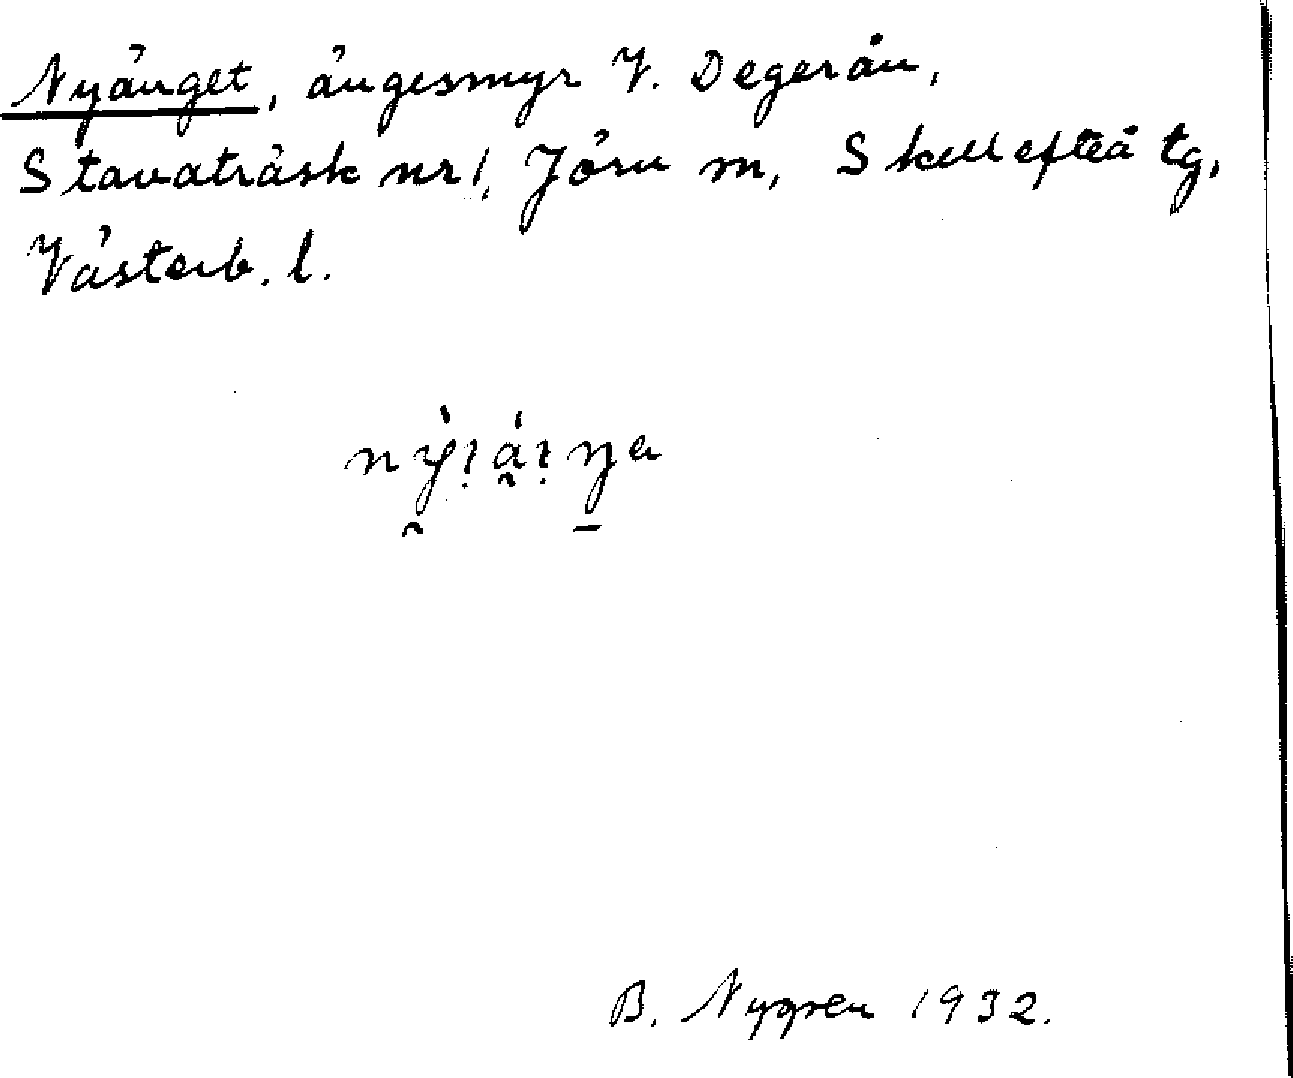 Nyänget, ängesmyr V. Degerån,
Stavaträsk nr 1, Jörn sn, Skellefteå tg,
Västerb. l.
B. Nygren 1932.